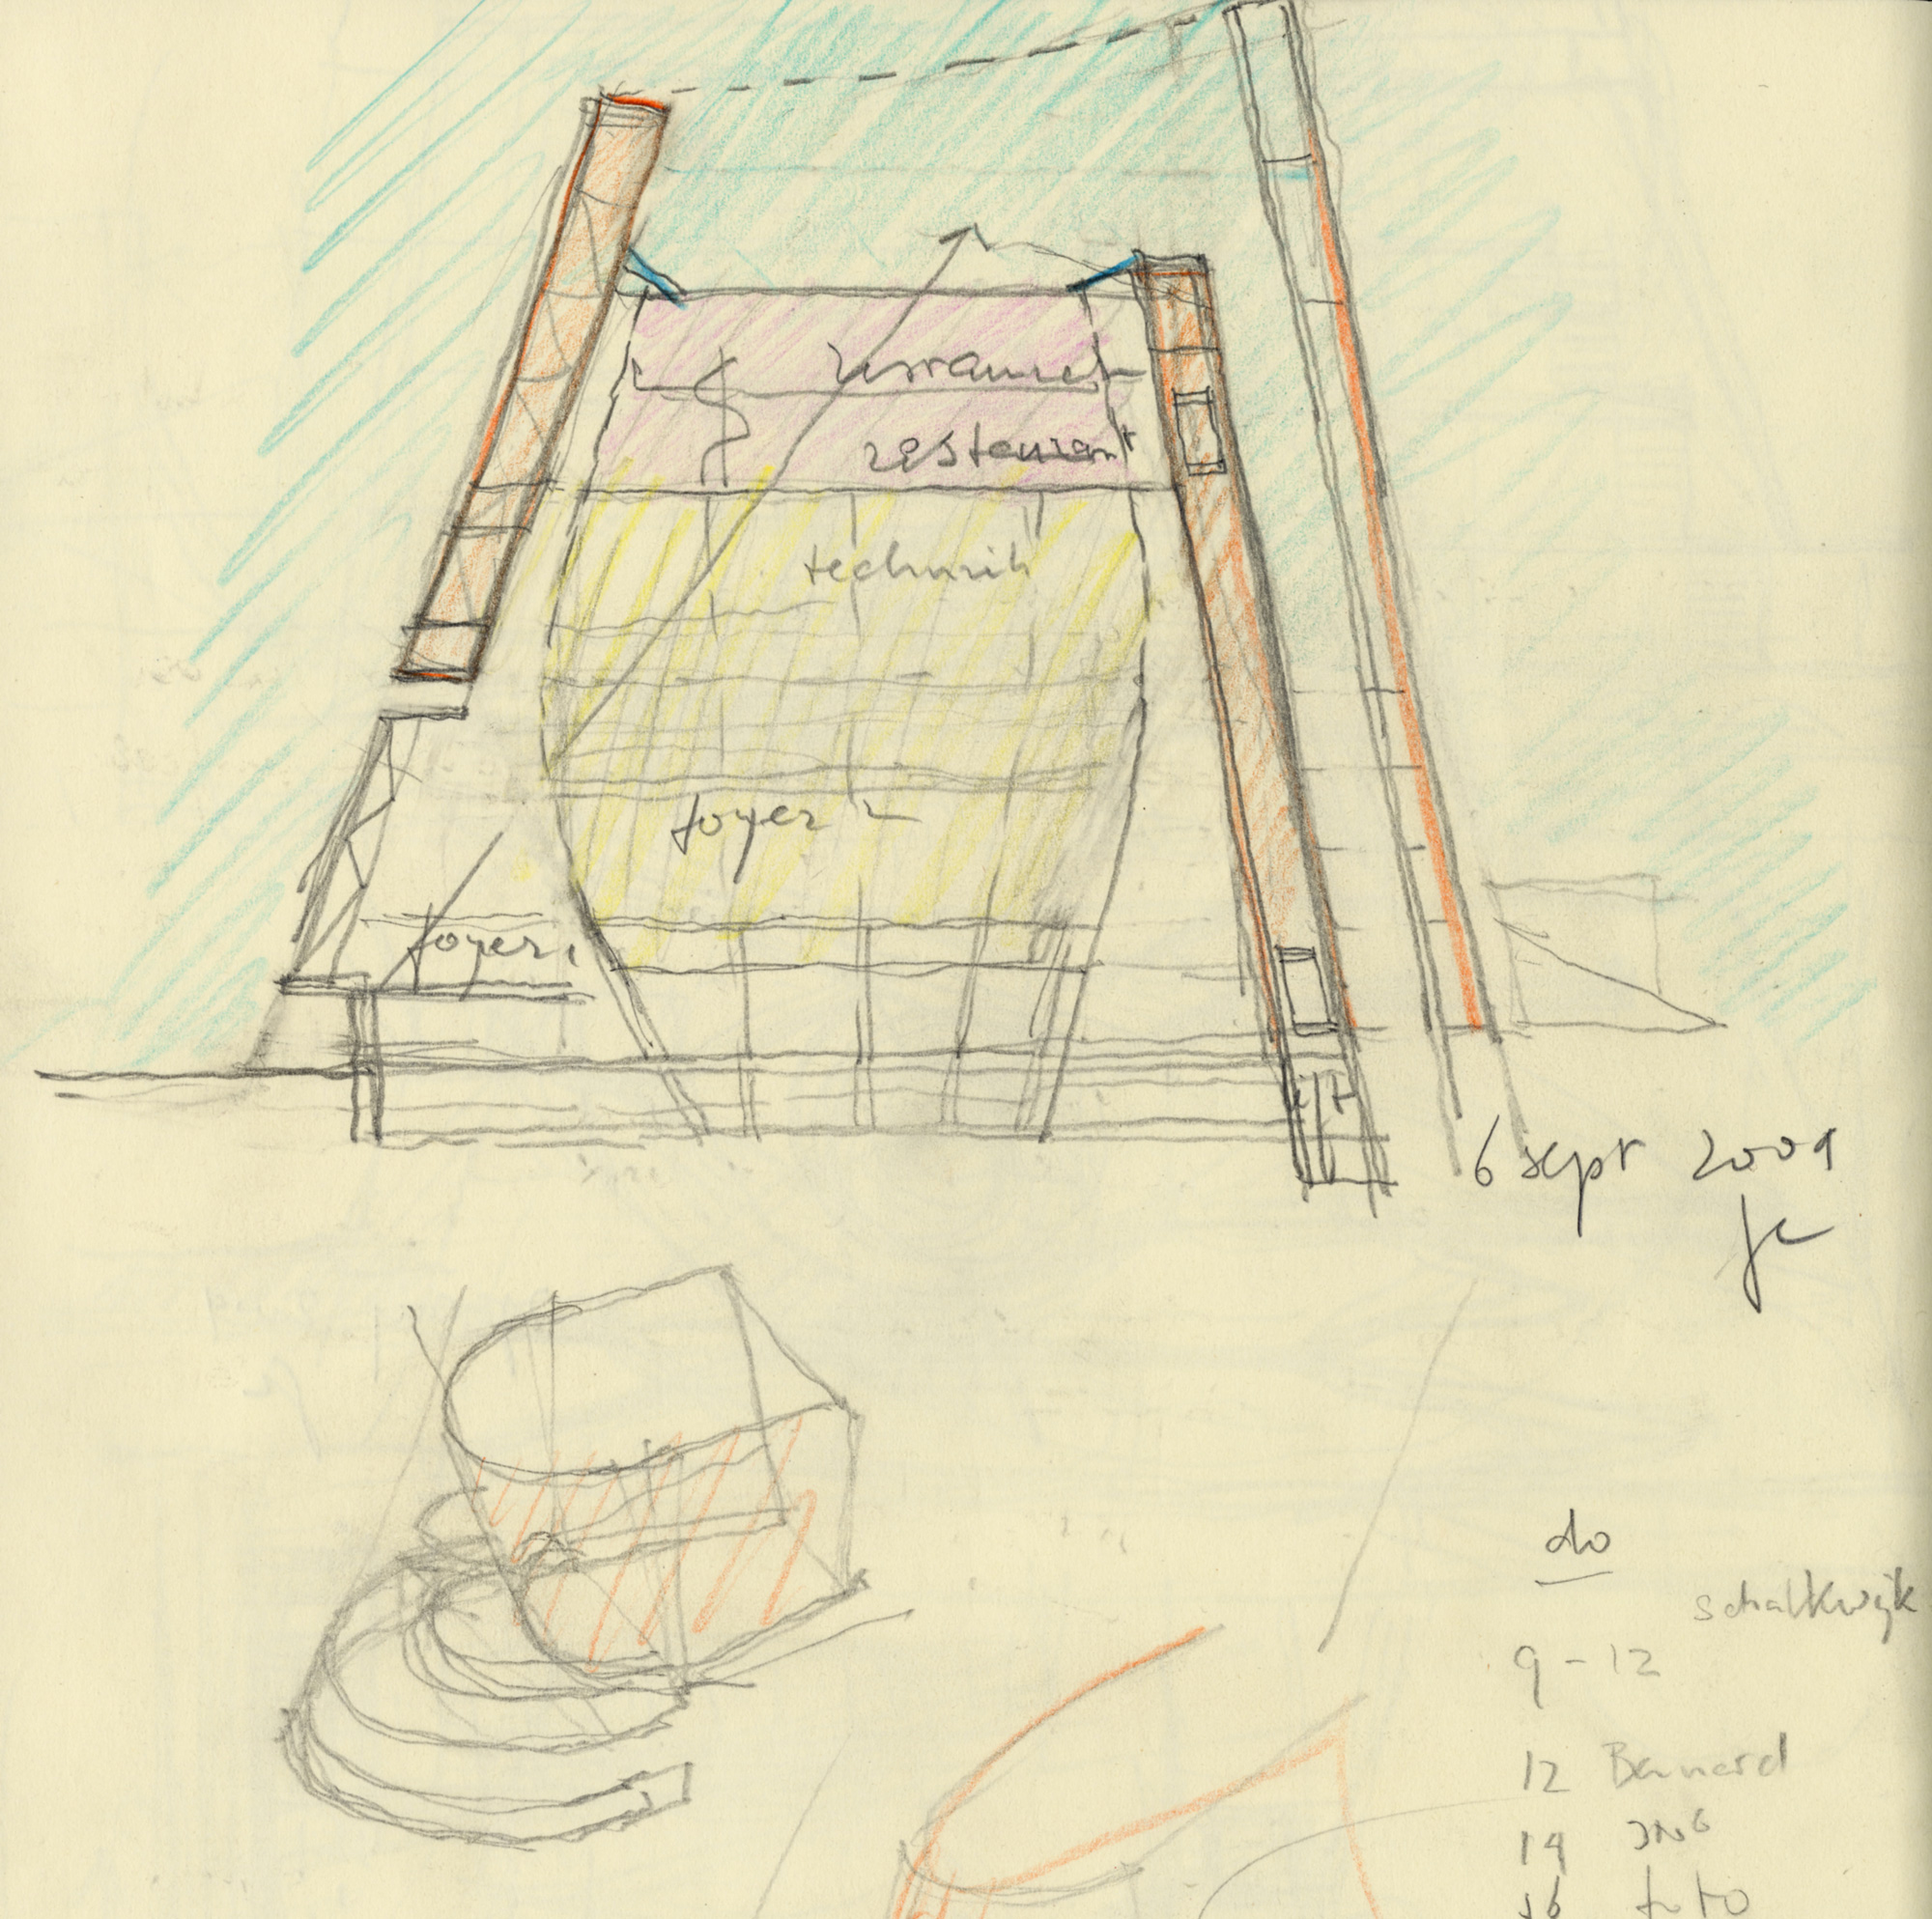 restaurant
restaurant
technik
foyer 2
foyer 1
lift
6 sept 2009
do
schalkwijk
9-12
12 Bernard
14
16 foto